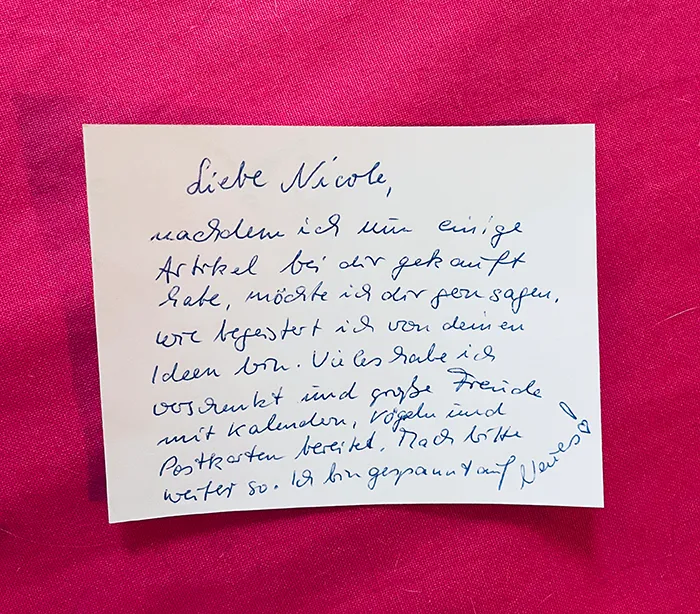 Liebe Nicole,
nachdem ich nun einige
Artikel bei dir gekauft
habe, möchte ich dir gern sagen,
wie begeistert ich von deinen
Ideen bin. Vieles habe ich
verschenkt und große Freude
mit Kalendern, Vögeln und
Postkarten bereitet. Mach bitte
weiter so. Ich bin gespannt auf
Neues!